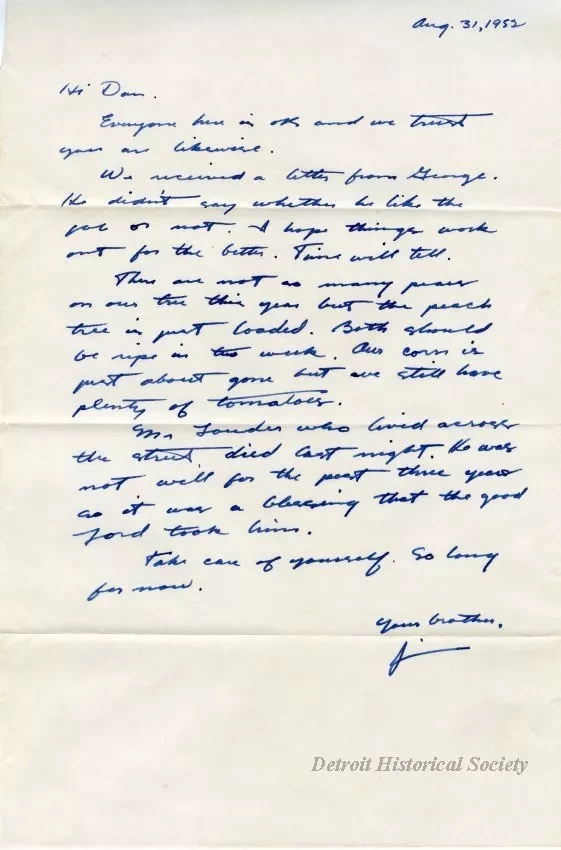 Aug. 31, 1952
Hi Dan.
Everyone here is ok and we trust
you are likewise.
We received a letter from George.
He didn't say whether he like the
job or not. I hope things work
out for the better. Time will tell.
There are not as many pears
on our tree this year but the peach
tree is just loaded. Both should
be ripe in two week. Our corn is
just about gone but we still have
plenty of tomatoes.
Mr who lived across
the street died last night. He was
not well for the past three years
so it was a blessing that the good
Lord took him.
Take care of yourself. So long
for now.
Your brother,
Detroit Historical Society